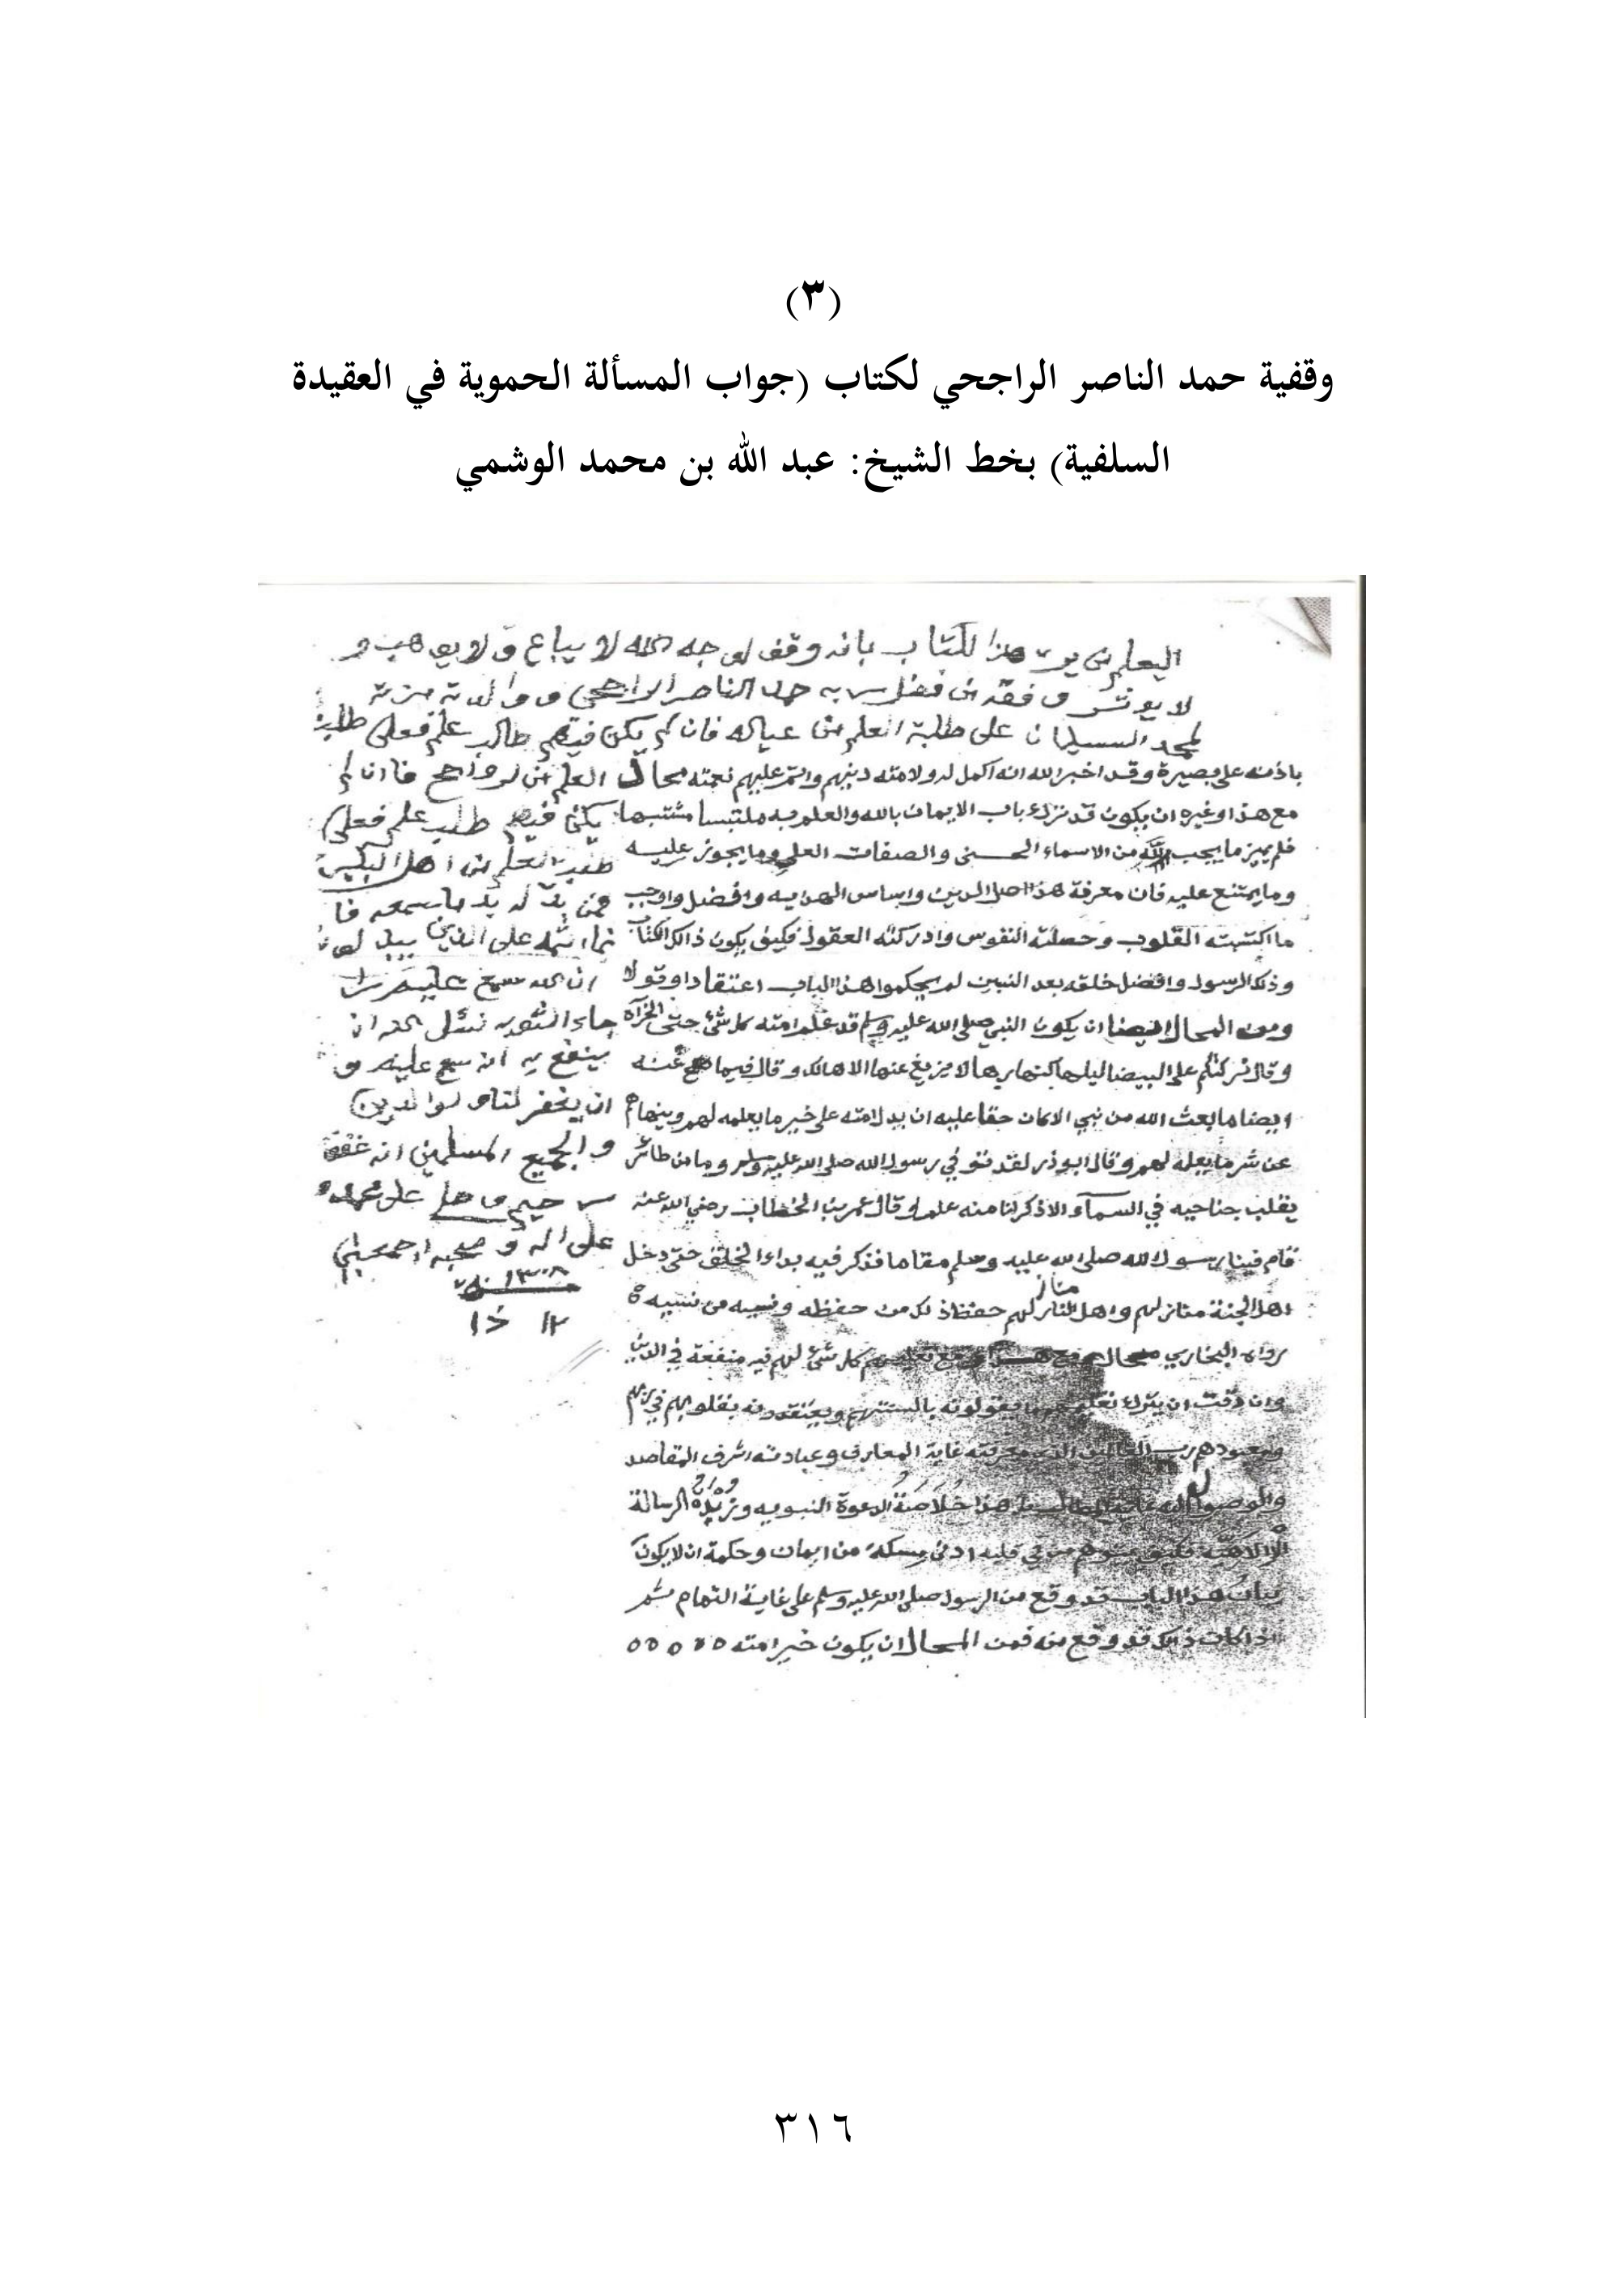 (٣)
وقفية حمد الناصر الراجحي لكتاب (جواب المسألة الحموية في العقيدة
السلفية) بخط الشيخ: عبد الله بن محمد الوشمي
هذا الكتاب بانه وقف لوجه الله لا يباع ولا يوهب و
حمد الناصر الراجحي ووالدته مزنة
على طلبة العلم من عياله فان لم يكن فيهم طالب علم فعلى طلبة
العلم من
يكن فيهم طلب علم فعلى
العلم من اهل البكيرية
فمن بدله بعد ما سمعه فا
نما اثمه على الذين يبدلونه
ان الله سميع عليم
نسئل الله ان
ينفع به انه سميع عليم و
ان يغفر لنا ولوالدين
ولجميع المسلمين انه غفور
رحيم وصلى على محمد و
على اله وصحبه اجمعين
١٣٠٨
باذنه على بصيرة وقد اخبر الله انه اكمل له ولامته دينهم واتم عليهم نعمته محال
مع هذا وغيره ان يكون قد ترك باب الايمان بالله والعلم به ملتبسا مشتبها
فلم يميز ما يجب لله من الاسماء الحسنى والصفات العلى وما يجوز عليه
وما يمتنع عليه فان معرفة هذا اصل الدين واساس الهدايه وافضل واوجب
ما اكتسبته القلوب وحصلته النفوس وادركته العقول فكيف يكون ذالك الكتاب
وذلك الرسول وافضل خلقه بعد النبيين لم يحكموا هذا الباب اعتقادا وقولا
ومن المحال ايضا ان يكون النبي صلى الله عليه وسلم قد علم امته كل شئ حتى الخرآة
وقال تركتكم على البيضا ليلها كنهارها لا يزيغ عنها الا هالك وقال فيما صح عنه
ايضا ما بعث الله من نبي الا كان حقا عليه ان يدل امته على خير ما يعلمه لهم وينهاهم
عن شر ما يعلمه لهم وقال ابوذر لقد توفي رسول الله صلى الله عليه وسلم وما من طائر
يقلب جناحيه في السمآء الا ذكر لنا منه علما وقال عمر بن الخطاب رضي الله عنه
قام فينا رسول الله صلى الله عليه وسلم مقاما فذكر فيه بداء الخلق حتى دخل
اهل الجنة منازلهم واهل النار منازلهم حفظ ذلك من حفظه ونسيه من نسيه
رواه البخاري محال مع تعليمهم كل شئ لهم فيه منفعة في الدين
وان دقت ان يترك تعليمهم ما يقولونه بالسنتهم ويعتقدونه بقلوبهم في ربهم
ومعبودهم رب العالمين الذي معرفته غاية المعارف وعبادته اشرف المقاصد
والوصول اليه غاية المطالب بل هذا خلاصة الدعوة النبويه وزبدة الرسالة
الالاهية فكيف يتوهم من في قلبه ادنى مسكة من ايمان وحكمة ان لا يكون
بيان هذا الباب قد وقع من الرسول صلى الله عليه وسلم على غاية التمام ثم
اذا كان ذالك قد وقع منه فمن المحال ان يكون خير امته
٣١٦